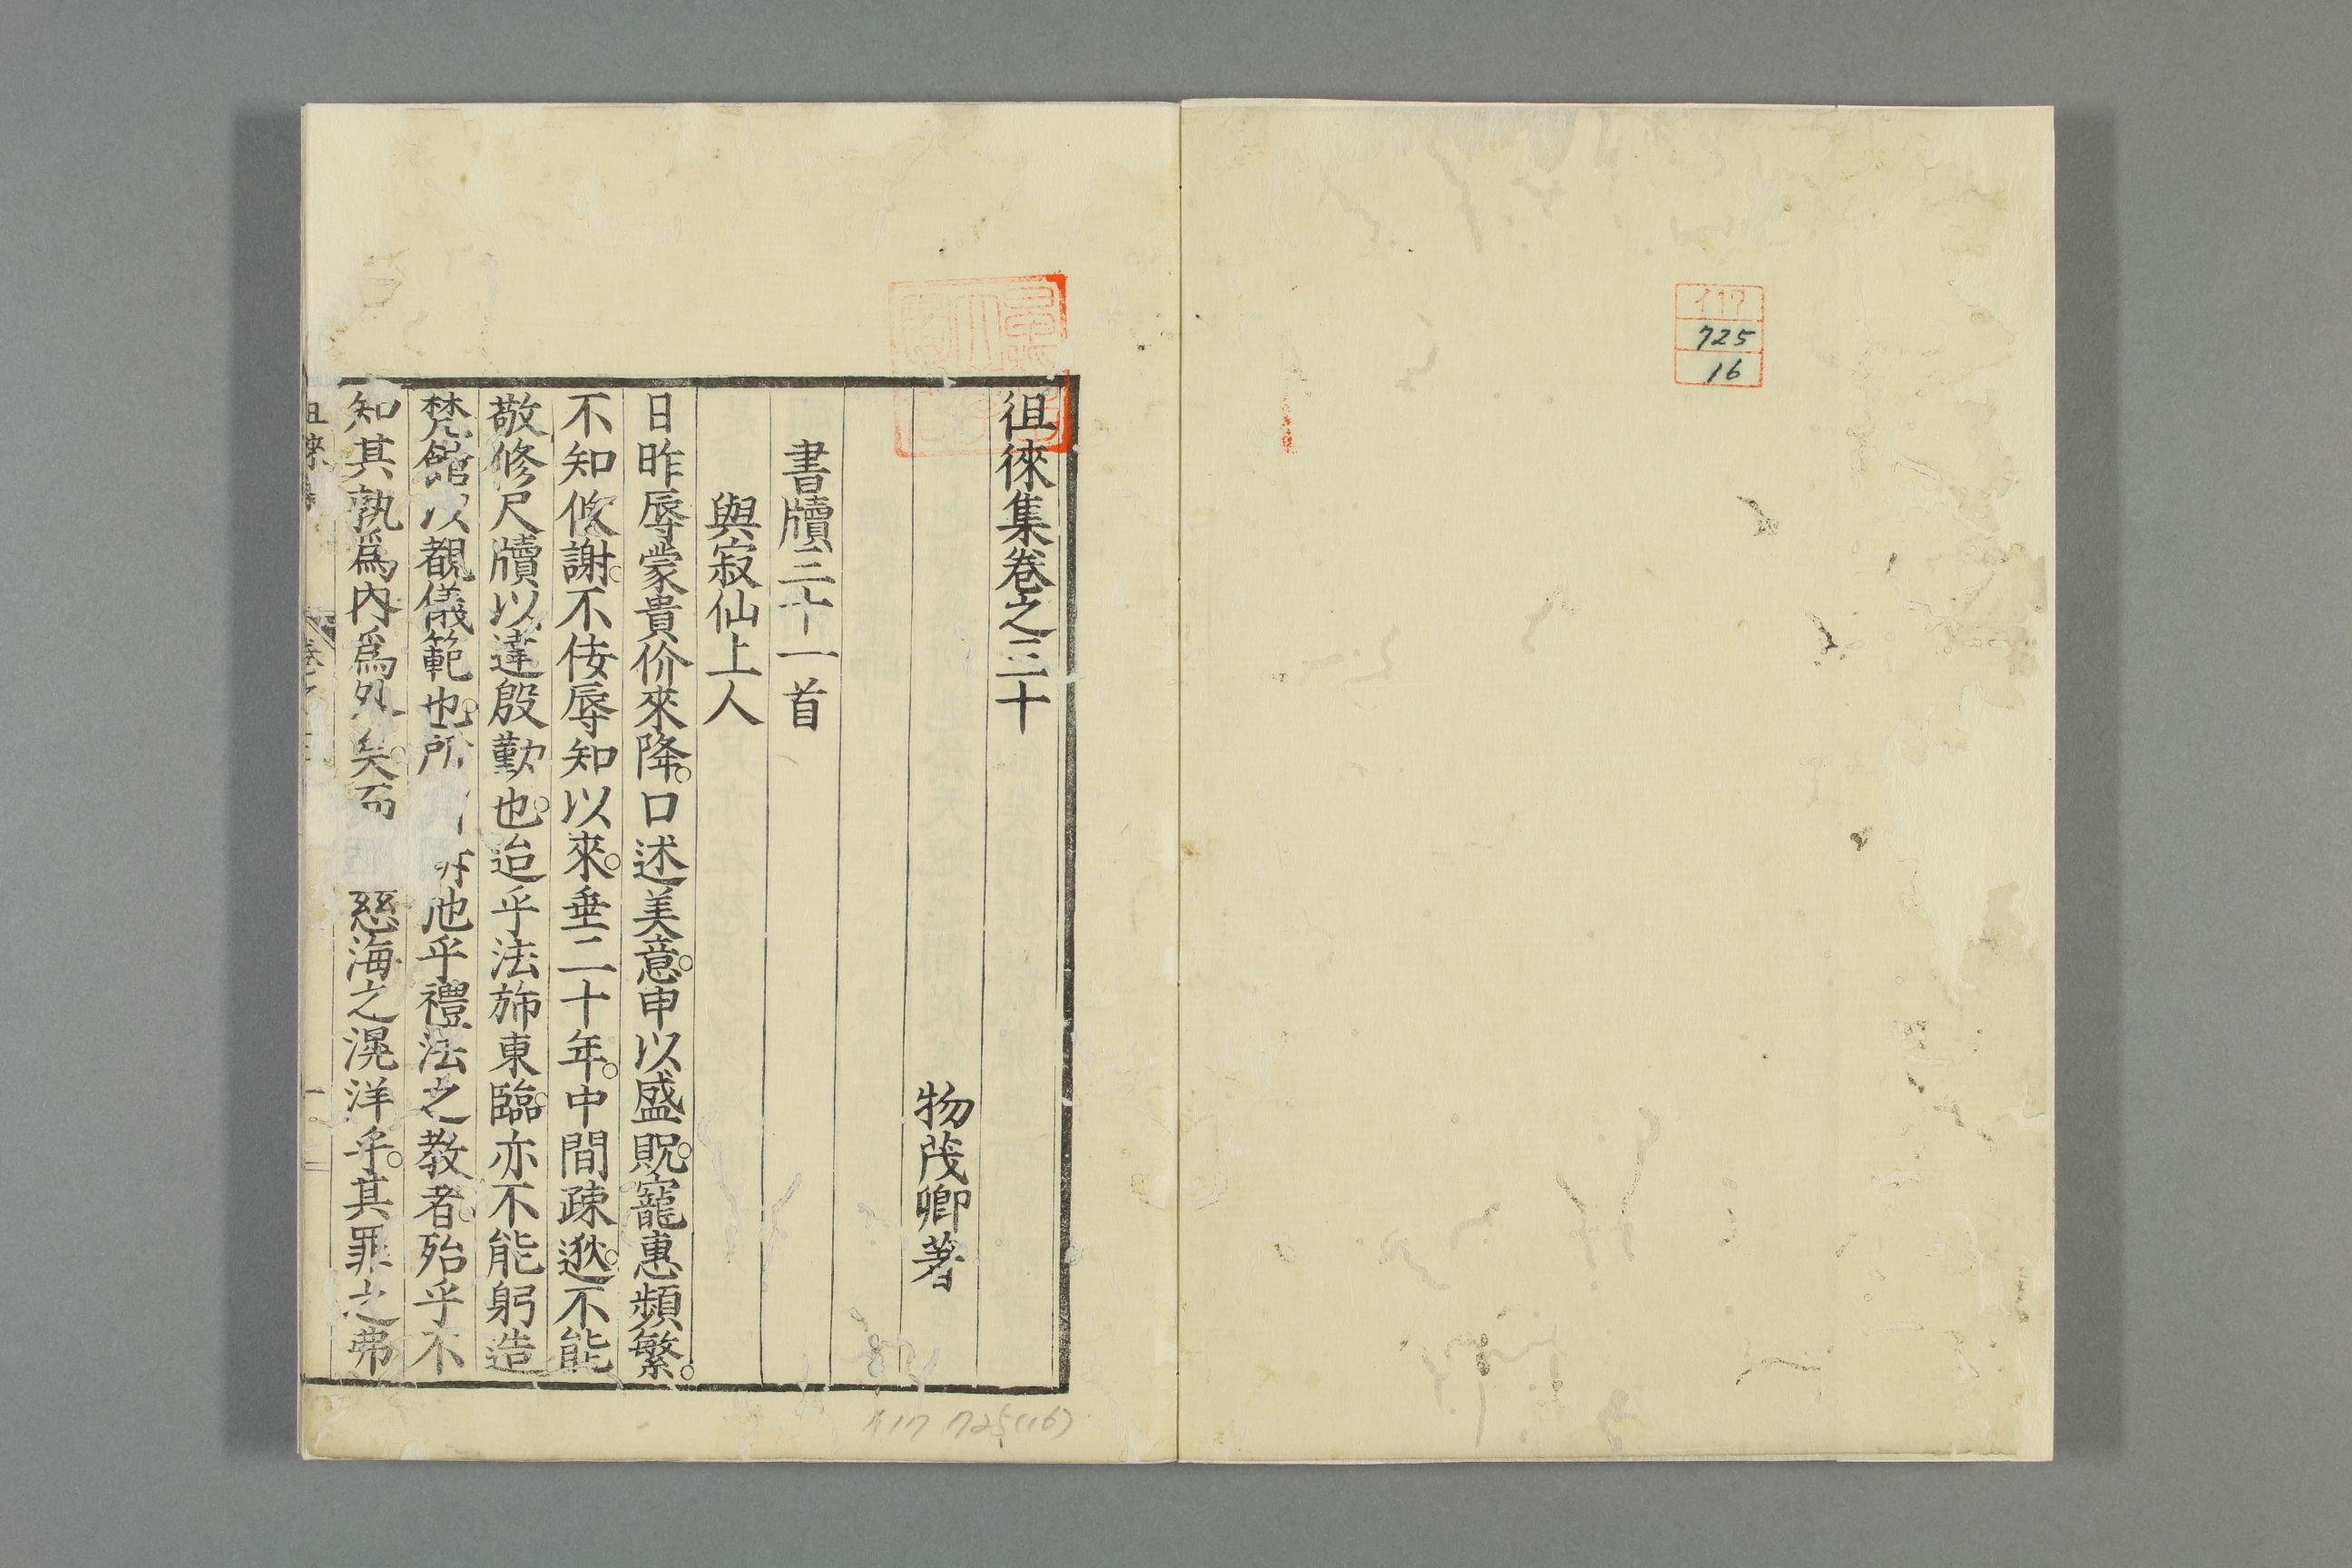 イ17
725
16
徂徠集卷之三十
物茂卿著
書牘三十一首
與寂仙上人
日昨辱蒙貴价來降。口述美意。申以盛貺。寵惠頻繁。
不知攸謝。不佞辱知以來。垂二十年。中間疎逖。不能
敬修尺牘以達殷勤也。迨乎法斾東臨。亦不能躬造
梵館以覩儀範也。所 他乎禮法之教者。殆乎不
知其孰爲內爲外矣。而 慈海之滉洋乎。其罪之弗
イ17 725(16)